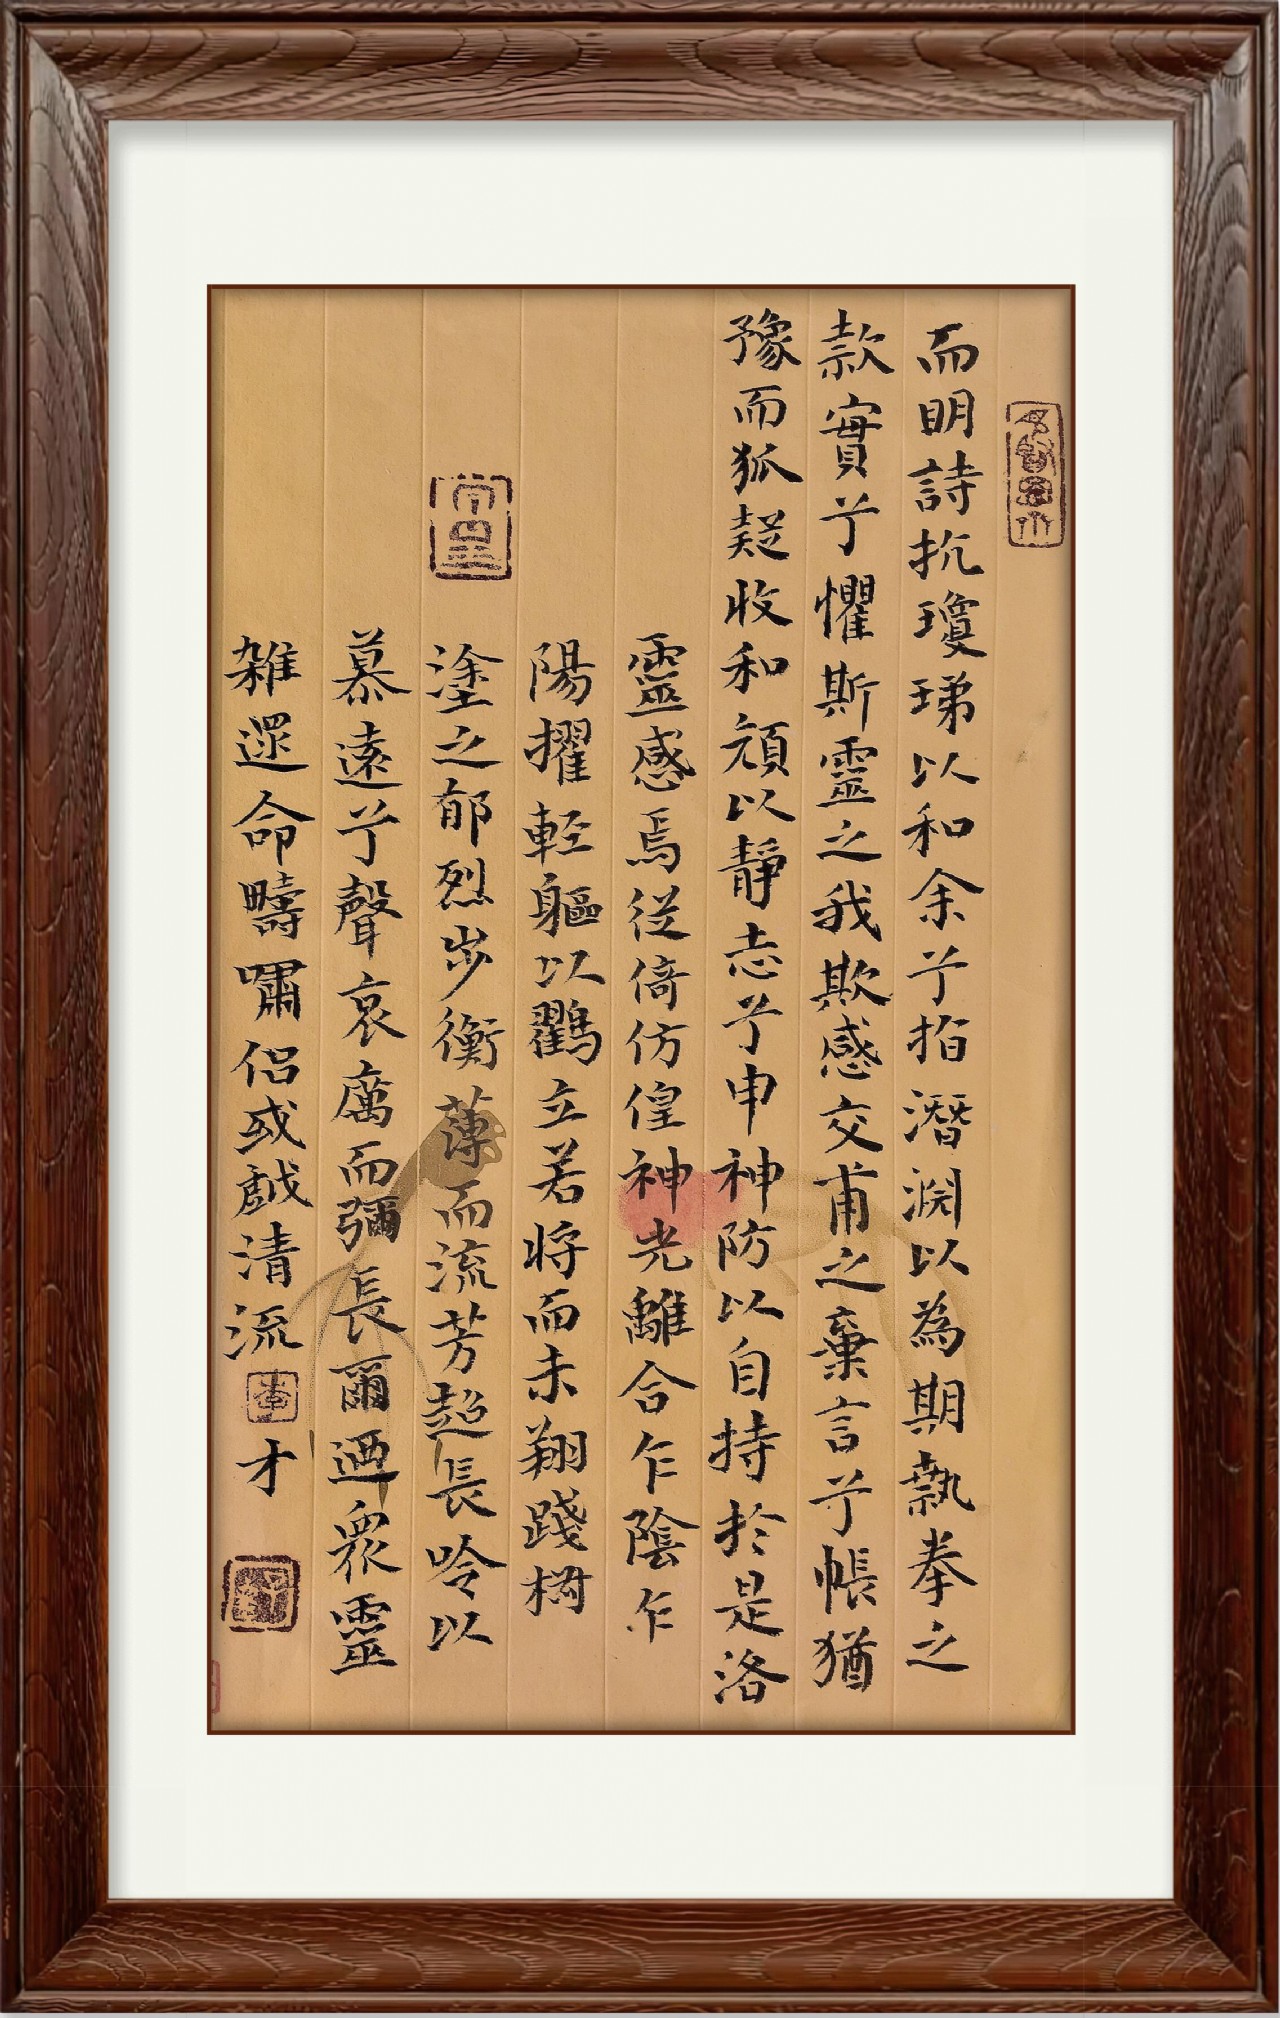 而明詩抗瓊珶以和余兮指潛淵以為期執拳之
款實兮懼斯靈之我欺感交甫之棄言兮悵猶
豫而狐疑收和顏以靜志兮申神防以自持於是洛
靈感焉徙倚仿偟神光離合乍陰乍
陽擢輕軀以鸖立若將而未翔踐椒
塗之郁烈步衡薄而流芳超長吟以
慕遠兮聲哀厲而彌長爾迺衆靈
雑遝命疇嘯侶或戲清流
才